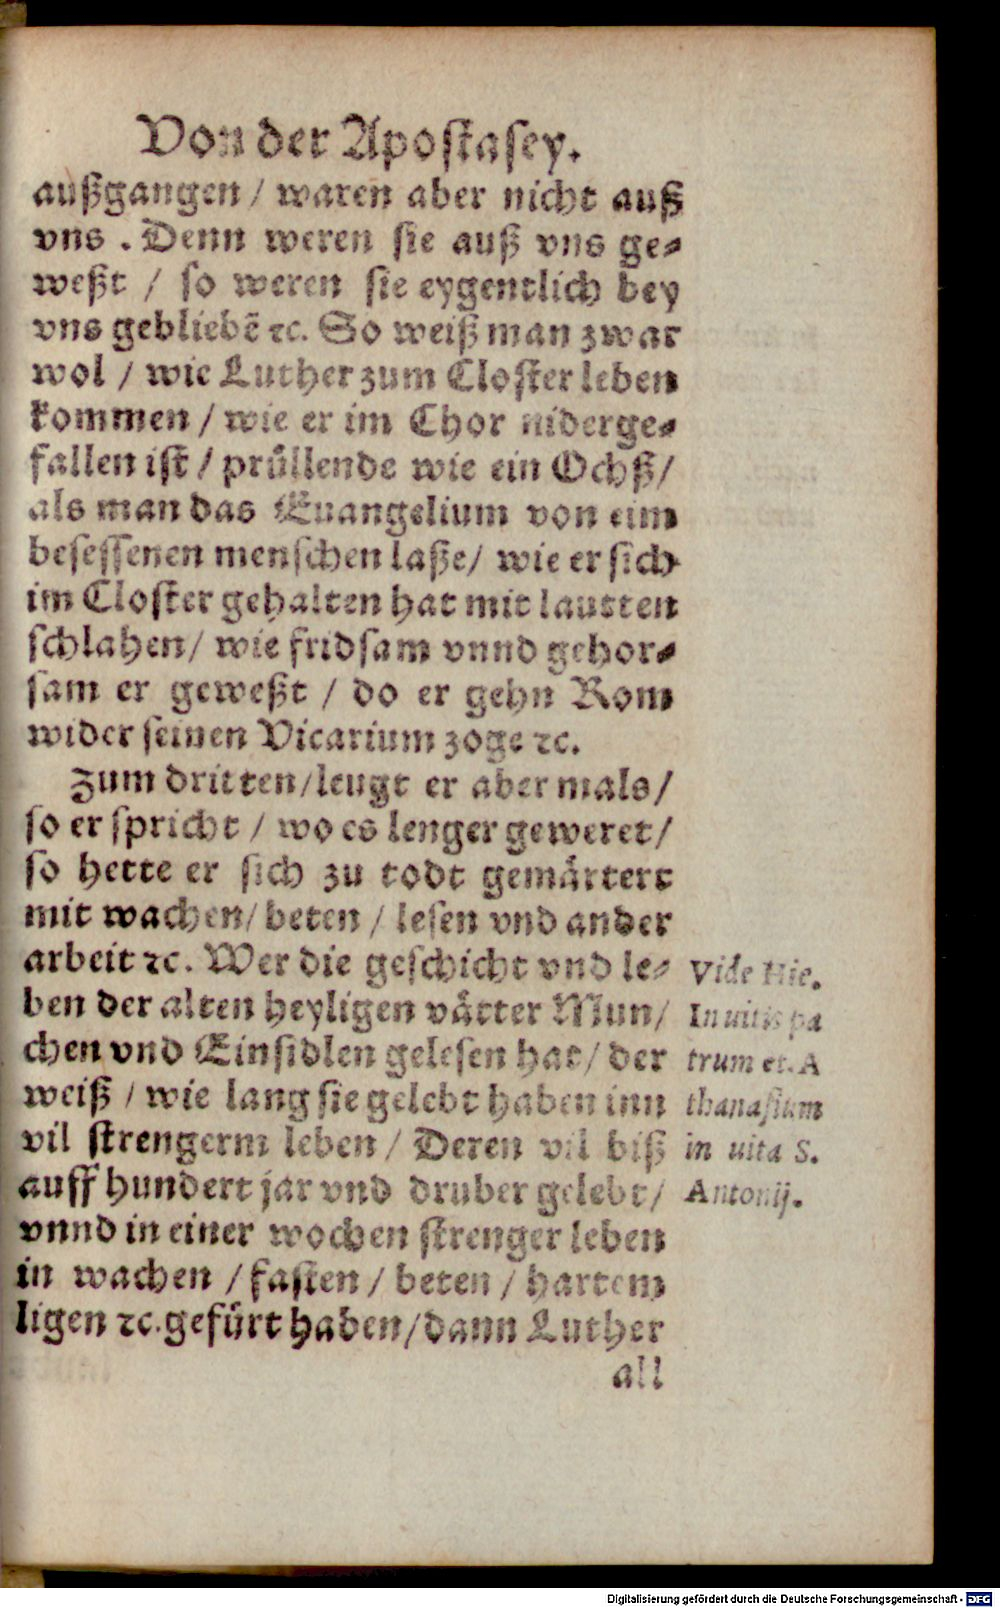 Von der Apostasey.
außgangen / waren aber nicht auß
vns . Denn weren sie auß vns ge-
weßt / so weren sie eygentlich bey
vns gebliebē ꝛc. So weiß man zwar
wol / wie Luther zum Closter leben
kommen / wie er im Chor niderge-
fallen ist / prüllende wie ein Ochß /
als man das Euangelium von eim
besessenen menschen laße / wie er sich
im Closter gehalten hat mit lautten
schlahen / wie fridsam vnnd gehor-
sam er geweßt / do er gehn Rom
wider seinen Vicarium zoge ꝛc.
Zum dritten / leugt er aber mals /
so er spricht / wo es lenger geweret /
so hette er sich zu todt gemärtert
mit wachen / beten / lesen vnd ander
arbeit ꝛc. Wer die geschicht vnd le-
ben der alten heyligen vätter Mün /
chen vnd Einsidlen gelesen hat / der
weiß / wie lang sie gelebt haben inn
vil strengerm leben / Deren vil biß
auff hundert jar vnd druber gelebt /
vnnd in einer wochen strenger leben
in wachen / fasten / beten / hartem
ligen ꝛc. gefürt haben / dann Luther
all
Vide Hie.
In uitis pa
trum et. A
thanasium
in uita S.
Antonij.
Digitalisierung gefördert durch die Deutsche Forschungsgemeinschaft - DFG